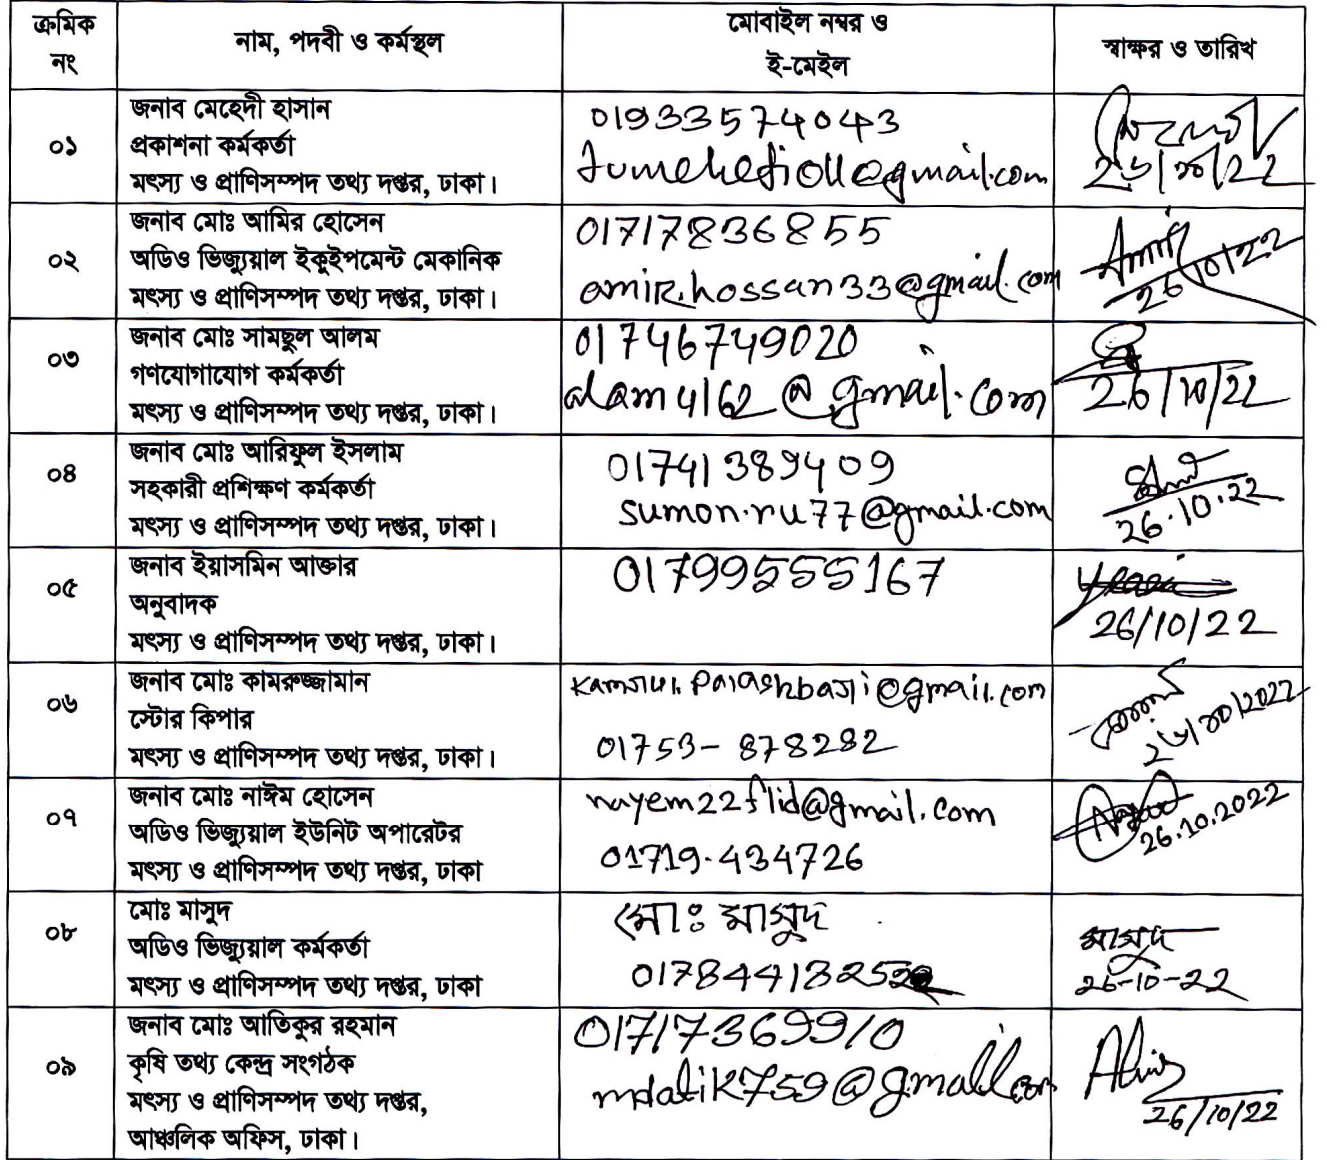 ক্রমিক
নং
নাম, পদবী ও কর্মস্থল
মোবাইল নম্বর ও
ই-মেইল
স্বাক্ষর ও তারিখ
০১
জনাব মেহেদী হাসান
প্রকাশনা কর্মকর্তা
মৎস্য ও প্রাণিসম্পদ তথ্য দপ্তর, ঢাকা।
01933574043
২৬/১০/22
০২
জনাব মোঃ আমির হোসেন
অডিও ভিজ্যুয়াল ইকুইপমেন্ট মেকানিক
মৎস্য ও প্রাণিসম্পদ তথ্য দপ্তর, ঢাকা।
01717836855
amir.hossan33@gmail.com
Amir
26/10/22
০৩
জনাব মোঃ সামছুল আলম
গণযোগাযোগ কর্মকর্তা
মৎস্য ও প্রাণিসম্পদ তথ্য দপ্তর, ঢাকা।
01746749020
alam4162@gmail.com
26/10/22
০৪
জনাব মোঃ আরিফুল ইসলাম
সহকারী প্রশিক্ষণ কর্মকর্তা
মৎস্য ও প্রাণিসম্পদ তথ্য দপ্তর, ঢাকা।
01741389409
sumon.ru77@gmail.com
26.10.22
০৫
জনাব ইয়াসমিন আক্তার
অনুবাদক
মৎস্য ও প্রাণিসম্পদ তথ্য দপ্তর, ঢাকা।
01799555167
26/10/22
০৬
জনাব মোঃ কামরুজ্জামান
স্টোর কিপার
মৎস্য ও প্রাণিসম্পদ তথ্য দপ্তর, ঢাকা।
01753-878282
২৬/১০/2022
০৭
জনাব মোঃ নাঈম হোসেন
অডিও ভিজ্যুয়াল ইউনিট অপারেটর
মৎস্য ও প্রাণিসম্পদ তথ্য দপ্তর, ঢাকা
nayem22flid@gmail.com
01719-434726
26.10.2022
০৮
মোঃ মাসুদ
অডিও ভিজ্যুয়াল কর্মকর্তা
মৎস্য ও প্রাণিসম্পদ তথ্য দপ্তর, ঢাকা
মোঃ মাসুদ
মাসুদ
26-10-22
০৯
জনাব মোঃ আতিকুর রহমান
কৃষি তথ্য কেন্দ্র সংগঠক
মৎস্য ও প্রাণিসম্পদ তথ্য দপ্তর,
আঞ্চলিক অফিস, ঢাকা।
01717369910
mdatik759@gmail.com
26/10/22